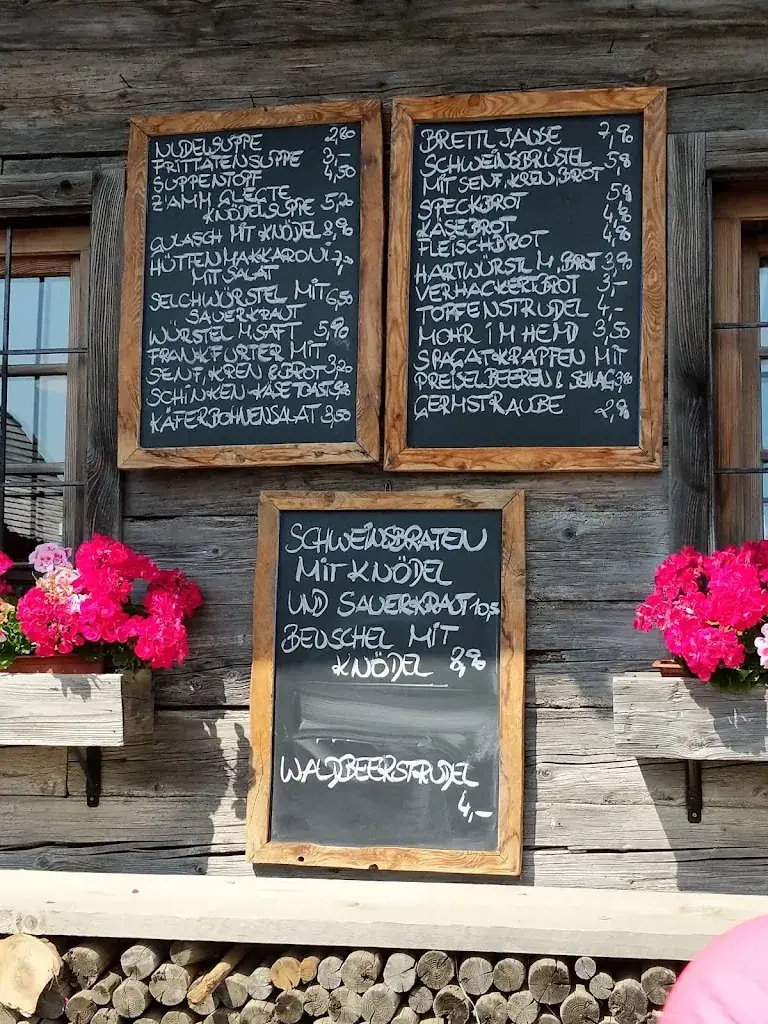 NUDELSUPPE 2,80
FRITTATENSUPPE 3,-
SUPPENTOPF 4,50
Z'AMM GLEGTE
KNÖDELSUPPE 5,20
GULASCH MIT KNÖDEL 8,90
HÜTTENMAKKARONI 7,-
MIT SALAT
SELCHWÜRSTEL MIT 6,50
SAUERKRAUT
WÜRSTEL M. SAFT 5,90
FRANKFURTER MIT
SENF, KREN & BROT 3,20
SCHINKEN-KÄSETOAST
KÄFERBOHNENSALAT 3,50
BRETTLJAUSE 7,90
SCHWEINSBRÜSTEL 5,8
MIT SENF, KREN, BROT
SPECKBROT
KÄSEBROT
FLEISCHBROT
HARTWÜRSTL M. BROT 3,90
VERHACKERTBROT 3,-
TOPFENSTRUDEL 4,-
MOHR IM HEMD 3,50
SPAGATKRAPFEN MIT
PREISELBEEREN & SCHLAG
GERMSTRAUBE 2,90
SCHWEINSBRATEN
MIT KNÖDEL
UND SAUERKRAUT 10,5
BEUSCHEL MIT
KNÖDEL 8,90
WALDBEERSTRUDEL
4,-